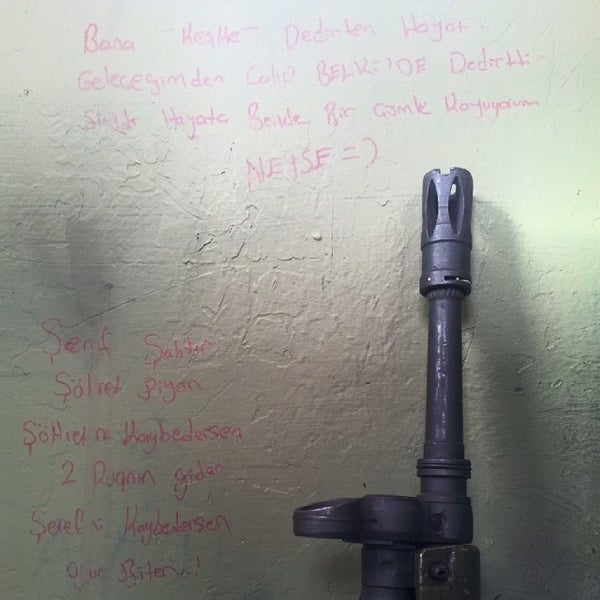 Bana "Keşke" Dedirten Hayat
Geleceğimden Çalıp BELKi'DE Dedirtti.
Şimdi Hayata Bende Bir Cümle Koyuyorum
NEYSE =)
Şeref Şahtır
Şöhret Piyon
Şöhreti Kaybedersen
2 Puanın gider
Şerefi Kaybedersen
Oyun Biter...!